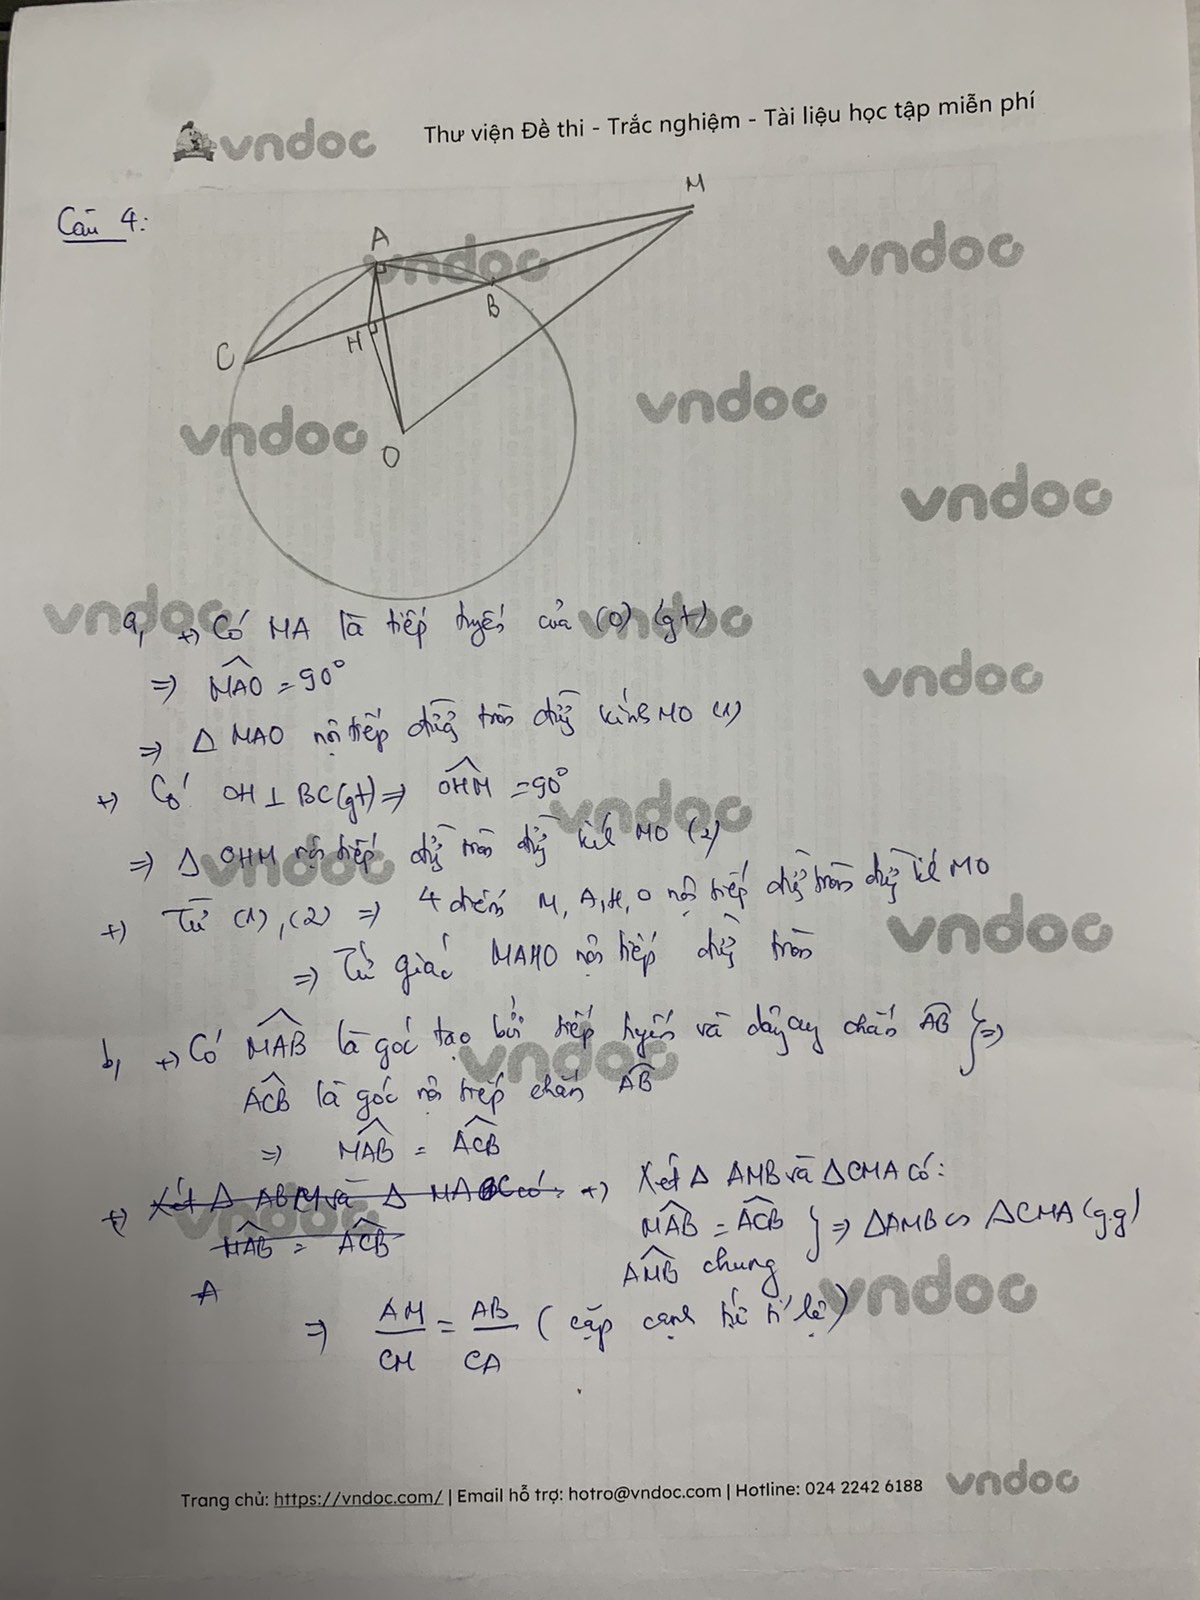 vndoc
Thư viện Đề thi - Trắc nghiệm - Tài liệu học tập miễn phí
Câu 4:
M
A
vndoc
vndoc
B
H
C
vndoc
vndoc
O
vndoc
vndoc
vndoc
a, +) Có MA là tiếp tuyến của (O) (gt)
=> MAO = 90°
vndoc
=> Δ MAO nội tiếp đường tròn đường kính MO (1)
+) Có OH ⊥ BC (gt) => OHM = 90°
vndoc
=> Δ OHM nội tiếp đường tròn đường kính MO (2)
vndoc
+) Từ (1), (2) => 4 điểm M, A, H, O nội tiếp đường tròn đường kính MO
vndoc
=> Tứ giác MAHO nội tiếp đường tròn
b, +) Có MAB là góc tạo bởi tiếp tuyến và dây cung chắn AB } =>
vndoc
ACB là góc nội tiếp chắn AB
=> MAB = ACB
+) Xét Δ ABM và Δ MAC có: +) Xét Δ AMB và Δ CMA có:
vndoc
MAB = ACB
MAB = ACB } => Δ AMB ∽ Δ CMA (g.g)
AMB chung
A
vndoc
=> AM/CM = AB/CA (cặp cạnh t/ứ tỉ lệ)
Trang chủ: https://vndoc.com/ | Email hỗ trợ: hotro@vndoc.com | Hotline: 024 2242 6188
vndoc